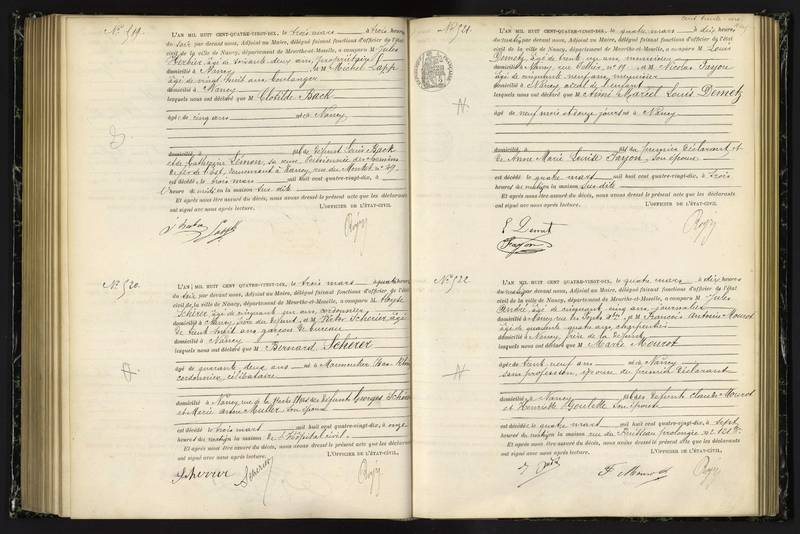 N° 519.
L'AN MIL HUIT CENT QUATRE-VINGT-DIX, le trois mars à trois heures
du soir par devant nous, Adjoint au Maire, délégué faisant fonctions d'officier de l'état
civil de la ville de Nancy, département de Meurthe-et-Moselle, a comparu M. Jules
âgé de soixante deux ans, propriétaire
domicilié à Nancy et M Michel Lapp
âgé de vingt huit ans boulanger
domicilié à Nancy
lesquels nous ont déclaré que M Clotilde Back
âgé de cinq ans né à Nancy
domicilié à fils de défunt Louis Back
et de Catherine Simon, sa veuve
de fer de l'est, demeurant à Nancy, rue du Montet n° 49
est décédé le trois mars mil huit cent quatre-vingt-dix, à
heure du matin en la maison sus dite
Et après nous être assuré du décès, nous avons dressé le présent acte que les déclarants
ont signé avec nous après lecture. L'OFFICIER DE L'ÉTAT-CIVIL,
N° 520.
L'AN MIL HUIT CENT QUATRE-VINGT-DIX, le trois mars à quatre heures
du soir par devant nous, Adjoint au Maire, délégué faisant fonctions d'officier de l'état
civil de la ville de Nancy, département de Meurthe-et-Moselle, a comparu M. Aloyse
Schérer, âgé de cinquante un ans, cordonnier,
domicilié à Nancy, frère du défunt, et M Victor Scheuer âgé
de trente huit ans garçon de bureau
domicilié à Nancy
lesquels nous ont déclaré que M Bernard Schérer
âgé de quarante deux ans né à (Bas-Rhin)
cordonnier, célibataire
domicilié à Nancy, fils des défunts Georges Schérer
et Marie Anne Muller, son épouse
est décédé le trois mars mil huit cent quatre-vingt-dix, à onze
heures du matin en la maison de l'hôpital civil.
Et après nous être assuré du décès, nous avons dressé le présent acte que les déclarants
ont signé avec nous après lecture. L'OFFICIER DE L'ÉTAT-CIVIL,
Scherrer
Scheuer
N° 521.
L'AN MIL HUIT CENT QUATRE-VINGT-DIX, le quatre mars à dix heures
du matin par devant nous, Adjoint au Maire, délégué faisant fonctions d'officier de l'état
civil de la ville de Nancy, département de Meurthe-et-Moselle, a comparu M. Louis
Demetz, âgé de trente un ans, menuisier
domicilié à Nancy, rue et M Nicolas Fayon
âgé de cinquante neuf ans, menuisier
domicilié à Nancy, aïeul de l'enfant
lesquels nous ont déclaré que M Aimé Marcel Louis Demetz
âgé de neuf mois et onze jours né à Nancy
domicilié à fils du premier déclarant et
de Anne Marie Louise Fayon, son épouse
est décédé le quatre mars mil huit cent quatre-vingt-dix, à trois
heures du matin en la maison sus dite
Et après nous être assuré du décès, nous avons dressé le présent acte que les déclarants
ont signé avec nous après lecture. L'OFFICIER DE L'ÉTAT-CIVIL,
Fayon
N° 522
L'AN MIL HUIT CENT QUATRE-VINGT-DIX, le quatre mars à dix heures
du matin par devant nous, Adjoint au Maire, délégué faisant fonctions d'officier de l'état
civil de la ville de Nancy, département de Meurthe-et-Moselle, a comparu M. Jules
André, âgé de cinquante cinq ans, journalier
domicilié à Nancy, rue et M François Antoine Mourot
âgé de quarante quatre ans, charpentier
domicilié à Nancy, frère de la défunte
lesquels nous ont déclaré que M Marie Mourot
âgée de trente neuf ans née à Nancy
sans profession, épouse du premier déclarant
domicilié à Nancy fille des défunts Claude Mourot
et Henriette Goutotte son épouse
est décédé le quatre mars mil huit cent quatre-vingt-dix, à sept
heures du matin en la maison rue du
Et après nous être assuré du décès, nous avons dressé le présent acte que les déclarants
ont signé avec nous après lecture. L'OFFICIER DE L'ÉTAT-CIVIL,
F. Mourot